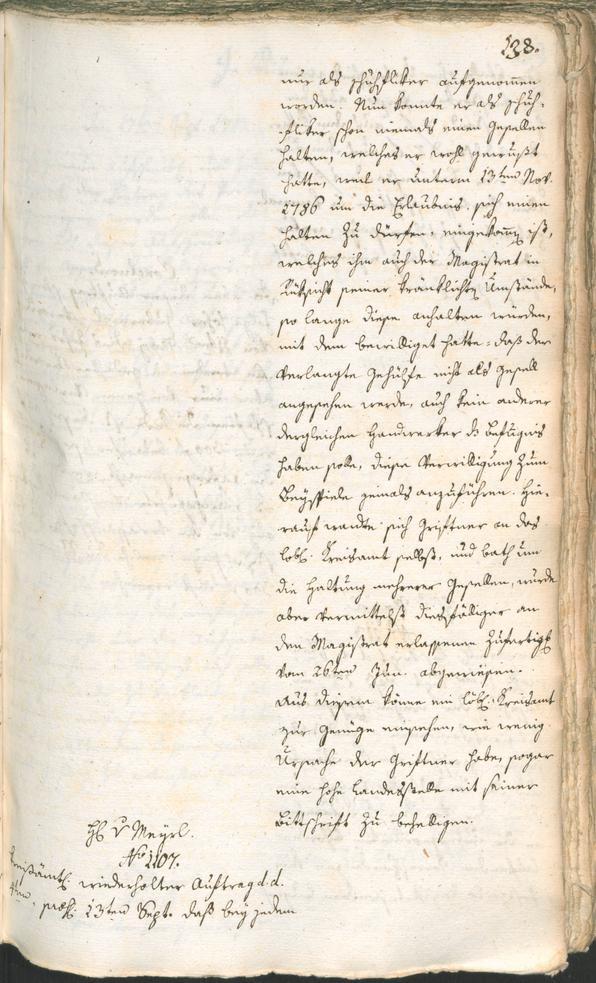 138.
nur als Schuhflicker aufgenommen
worden. Nun konnte er als Schuh-
flicker schon niemals einen Gesellen
halten, welches er wohl gewußt
hatte, weil er unterm 13ten Nov.
1786 um die Erlaubnis sich einen
halten zu dürfen, eingekommen ist,
welches ihm auch der Magistrat in
Rücksicht seiner kränklichen Umstände,
so lange diese anhalten würden,
mit dem bewilliget hatte: daß der
verlangte Gehülfe nicht als Gesell
angesehen werde, auch kein anderer
dergleichen Handwerker das Befugnis
haben solle, diese Verwilligung zum
Beyspiele jemals anzuführen. Hie-
rauf wandte sich Griftner an das
löbl. Kreisamt selbst, und bath um
die Haltung mehrerer Gesellen, wurde
aber vermittelst dießfälliger an
den Magistrat erlassenen Zufertig
vom 26ten Jun. abgewiesen.
Aus diesem könne ein löbl. Kreisamt
zur Genüge einsehen, wie wenig
Ursache der Griftner habe, sogar
eine hohe Landesstelle mit seiner
Bittschrift zu behelligen.
H v Meyrl.
No 1107.
Kreisämtl. wiederholter Auftrag d.d.
4ten, pres. 13ten Sept. daß bey jedem